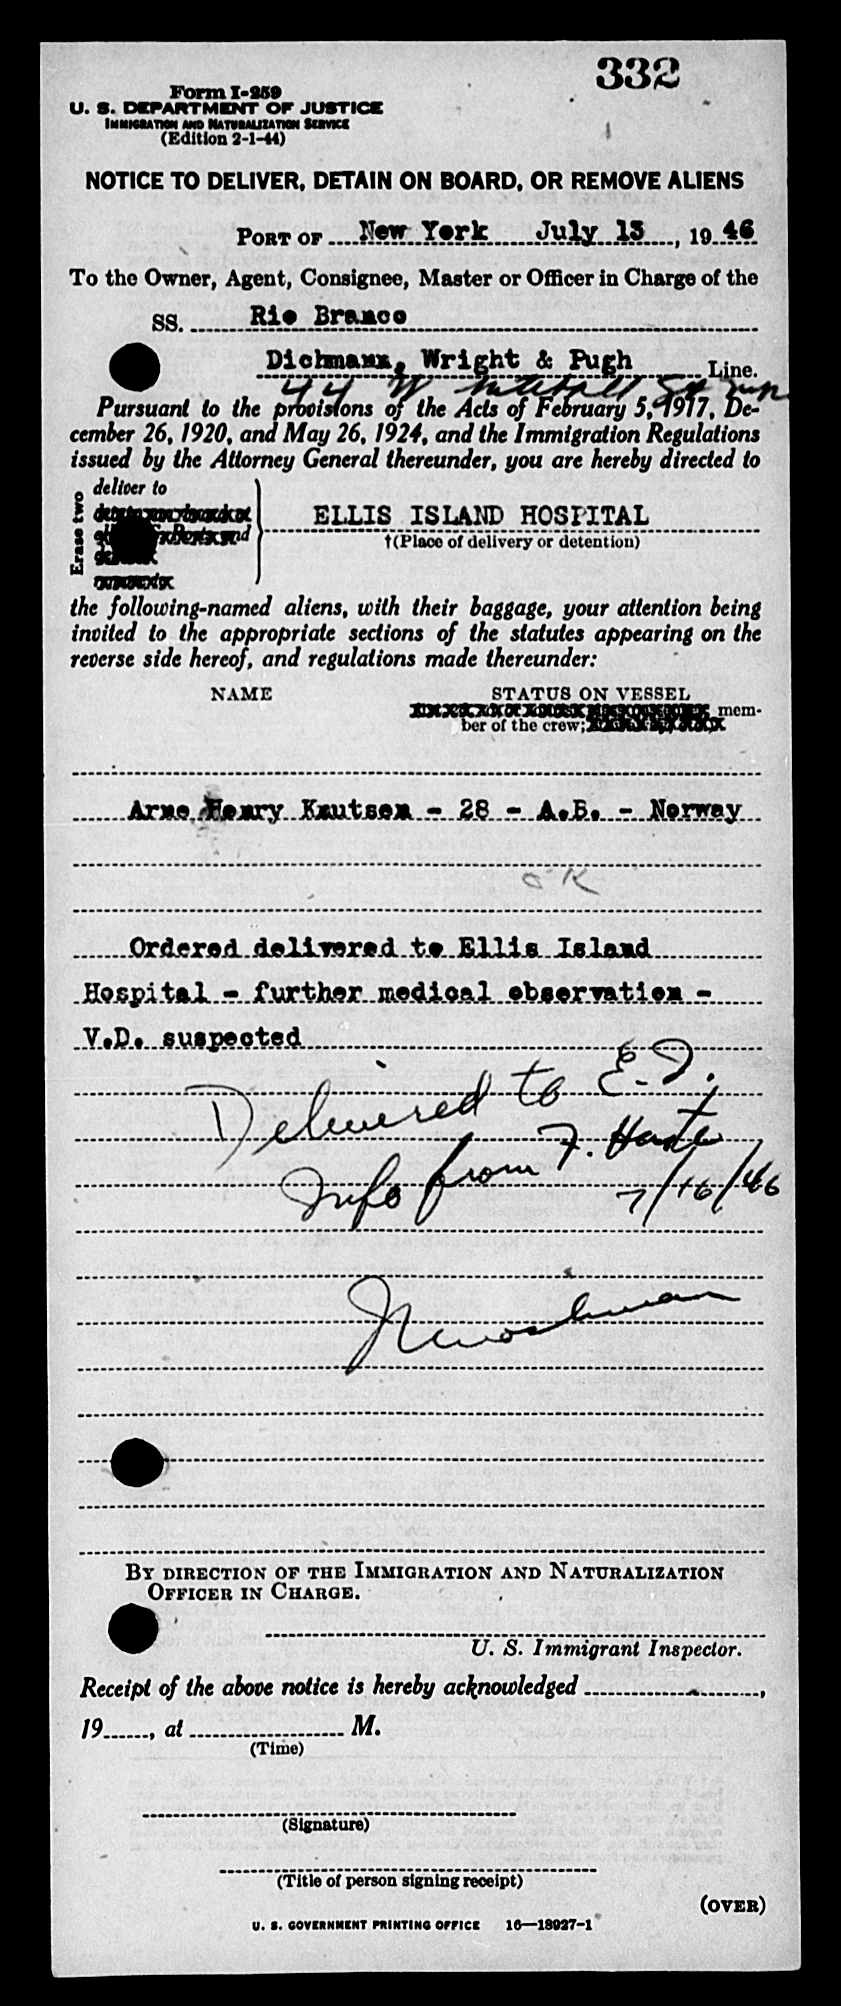 332
Form I-259
U. S. DEPARTMENT OF JUSTICE
IMMIGRATION AND NATURALIZATION SERVICE
(Edition 2-1-44)
NOTICE TO DELIVER, DETAIN ON BOARD, OR REMOVE ALIENS
PORT OF New York July 13, 1946
To the Owner, Agent, Consignee, Master or Officer in Charge of the
SS. Rio Branco
Dichmann, Wright & Pugh Line.
44 W
Pursuant to the provisions of the Acts of February 5, 1917, De-
cember 26, 1920, and May 26, 1924, and the Immigration Regulations
issued by the Attorney General thereunder, you are hereby directed to
Erase two
deliver to
ELLIS ISLAND HOSPITAL
†(Place of delivery or detention)
the following-named aliens, with their baggage, your attention being
invited to the appropriate sections of the statutes appearing on the
reverse side hereof, and regulations made thereunder:
NAME STATUS ON VESSEL
mem-
ber of the crew;
Arne Henry Knutsen - 28 - A.B. - Norway
OK
Ordered delivered to Ellis Island
Hospital - further medical observation -
V.D. suspected
Delivered to E.I.
Info from F.
7/16/46
BY DIRECTION OF THE IMMIGRATION AND NATURALIZATION
OFFICER IN CHARGE.
U. S. Immigrant Inspector.
Receipt of the above notice is hereby acknowledged ,
19 , at M.
(Time)
(Signature)
(Title of person signing receipt)
(OVER)
U. S. GOVERNMENT PRINTING OFFICE 16—18927-1